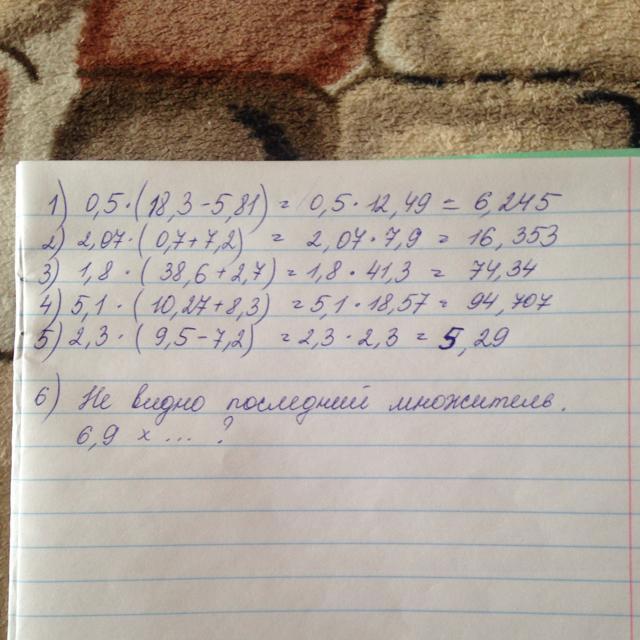 1) 0,5·(18,3-5,81) = 0,5·12,49 = 6,245
2) 2,07·(0,7+7,2) = 2,07·7,9 = 16,353
3) 1,8·(38,6+2,7) = 1,8·41,3 = 74,34
4) 5,1·(10,27+8,3) = 5,1·18,57 = 94,707
5) 2,3·(9,5-7,2) = 2,3·2,3 = 5,29
6) Не видно последний множитель.
6,9 х ... ?